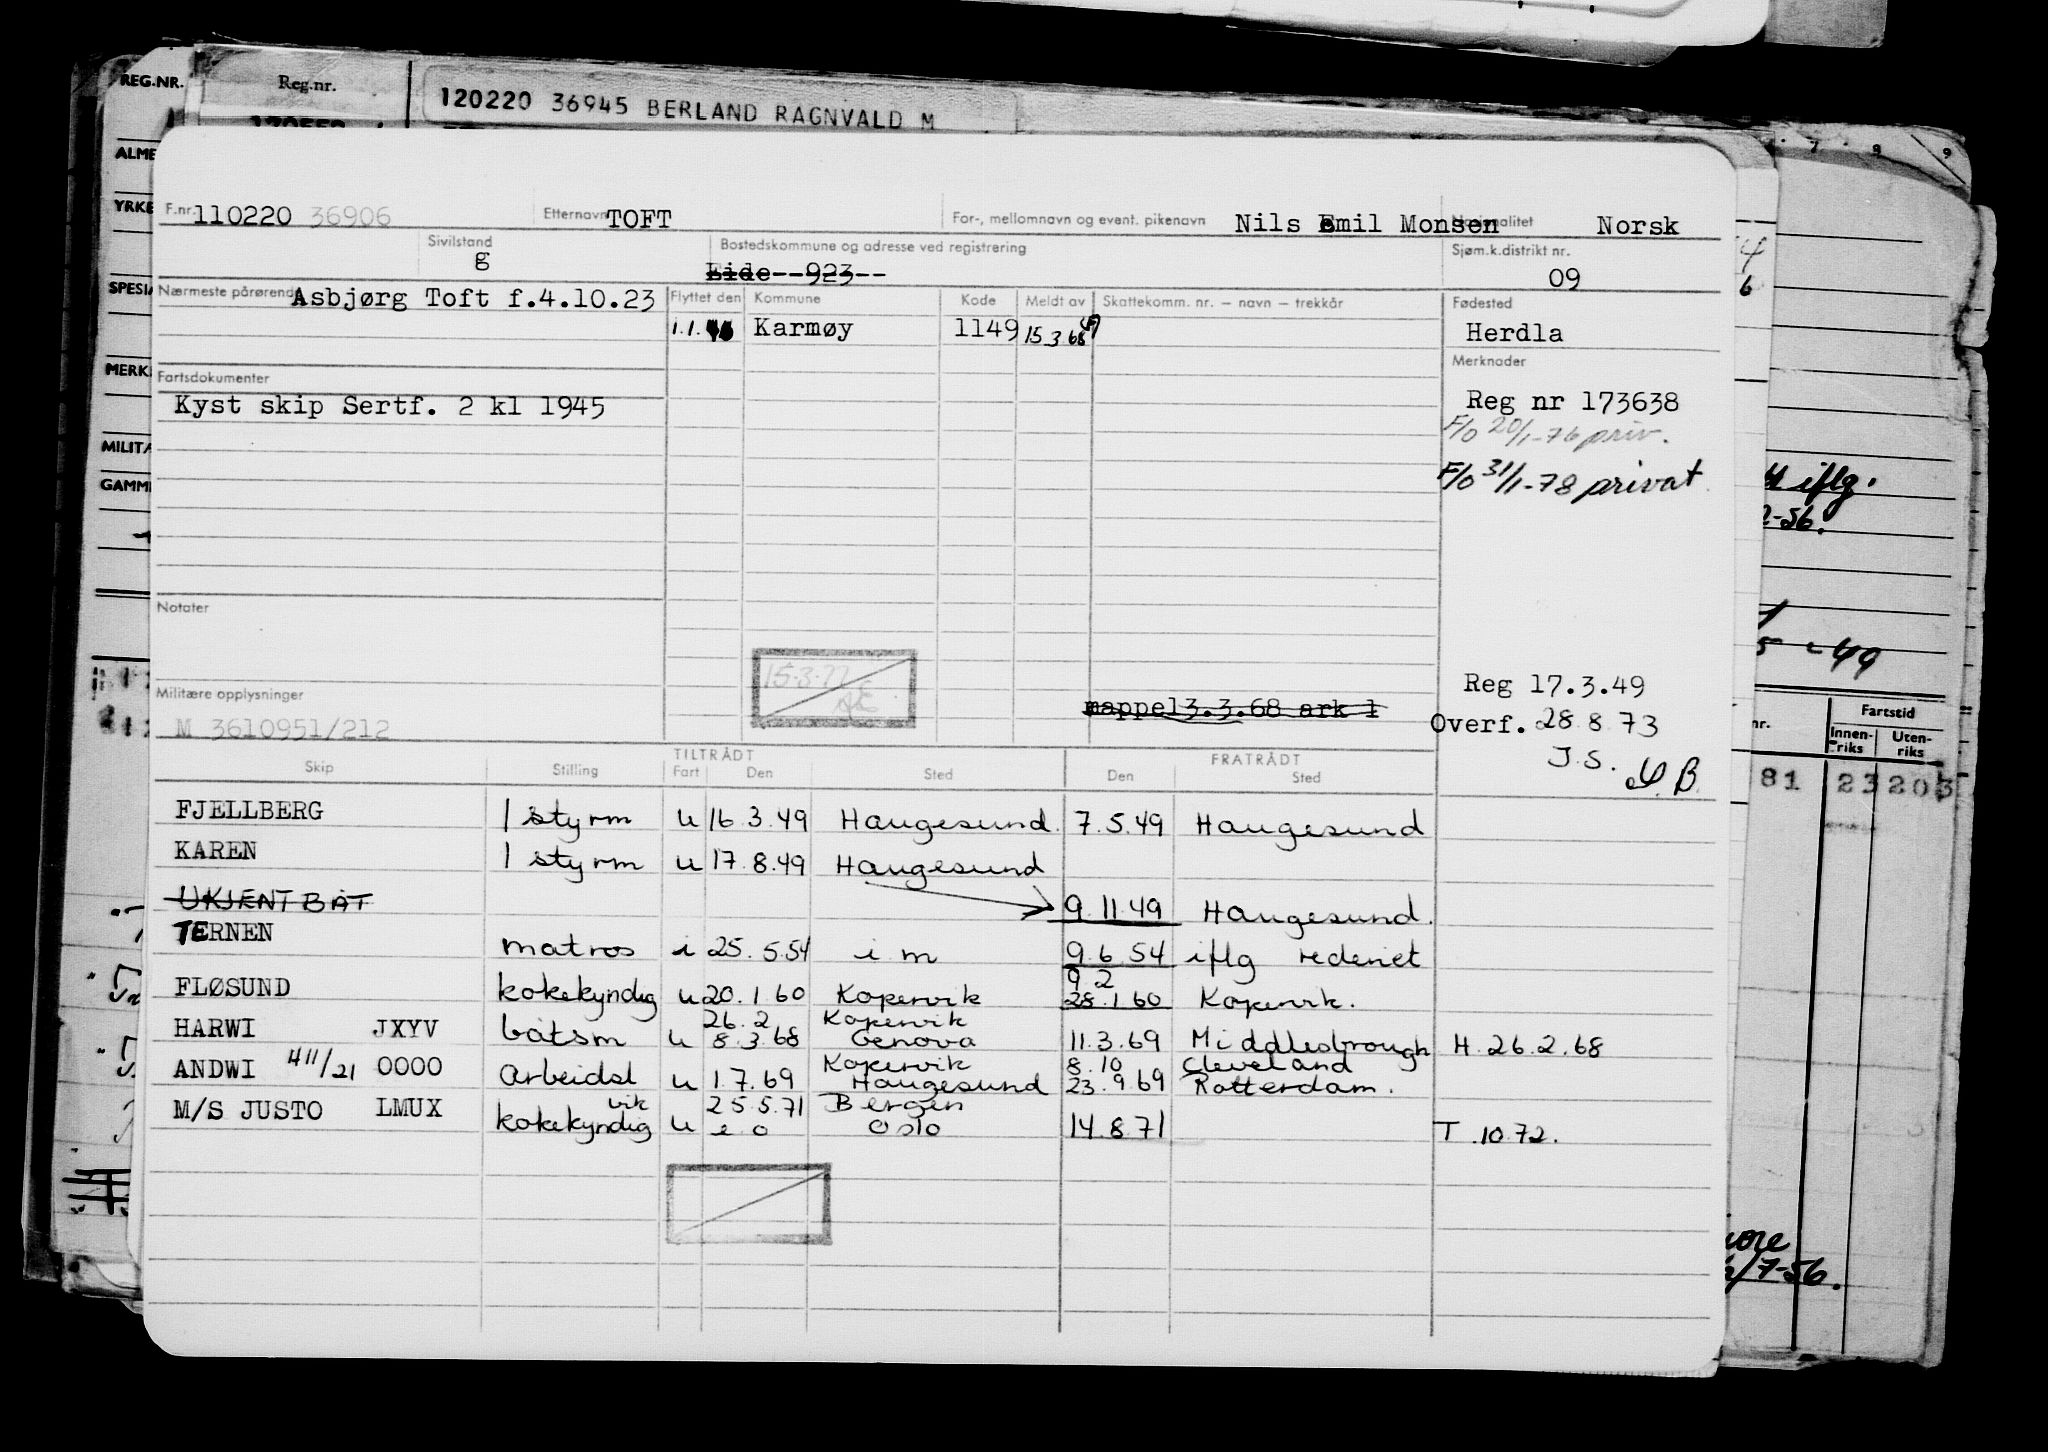 REG.NR.
Reg.nr.
120220 36945 BERLAND RAGNVALD M
7 8 9
ALME
YRKE
SPESIA
MERK
MILITÆ
GAMM
F.nr. 110220 36906 Etternavn TOFT For-, mellomnavn og event. pikenavn Nils Emil Monsen Nasjonalitet Norsk
Sivilstand g Bostedskommune og adresse ved registrering Eide--923-- Sjøm.k.distrikt nr. 09
Nærmeste pårørende Asbjørg Toft f.4.10.23 Flyttet den Kommune Kode Meldt av Skattekomm. nr. – navn – trekkår Fødested
1.1. Karmøy 1149 15.3.68 Herdla
Merknader
Fartsdokumenter
Kyst skip Sertf. 2 kl 1945 Reg nr 173638
F/o 20/1-76 priv.
F/o 31/1-78 privat
iflg.
2-56.
Notater
-49
15.3.77
Militære opplysninger
M 3610951/212
mappe13.3.68 ark 1
Reg 17.3.49
Overf. 28.8.73
J.S. B.
nr. Fartstid
Innen-riks Uten-riks
81 23 203
TILTRÅDT FRATRÅDT
Skip Stilling Fart Den Sted Den Sted
FJELLBERG 1 styrm u 16.3.49 Haugesund. 7.5.49 Haugesund
KAREN 1 styrm u 17.8.49 Haugesund
UKJENT BÅT 9.11.49 Haugesund.
TERNEN matros i 25.5.54 i m 9.6.54 iflg rederiet
9 2
FLØSUND kokekyndig u 20.1.60 Kopervik 28.1.60 Kopervik.
26.2 Kopervik
HARWI JXYV båtsm u 8.3.68 Genova 11.3.69 Middlesbrough H.26.2.68
Kopervik 8.10 Cleveland
ANDWI 411/21 OOOO Arbeidsl u 1.7.69 Haugesund 23.9.69 Rotterdam.
vik 25.5.71 Bergen
M/S JUSTO LMUX kokekyndig u e o Oslo 14.8.71 T.10.72.
/7-56.